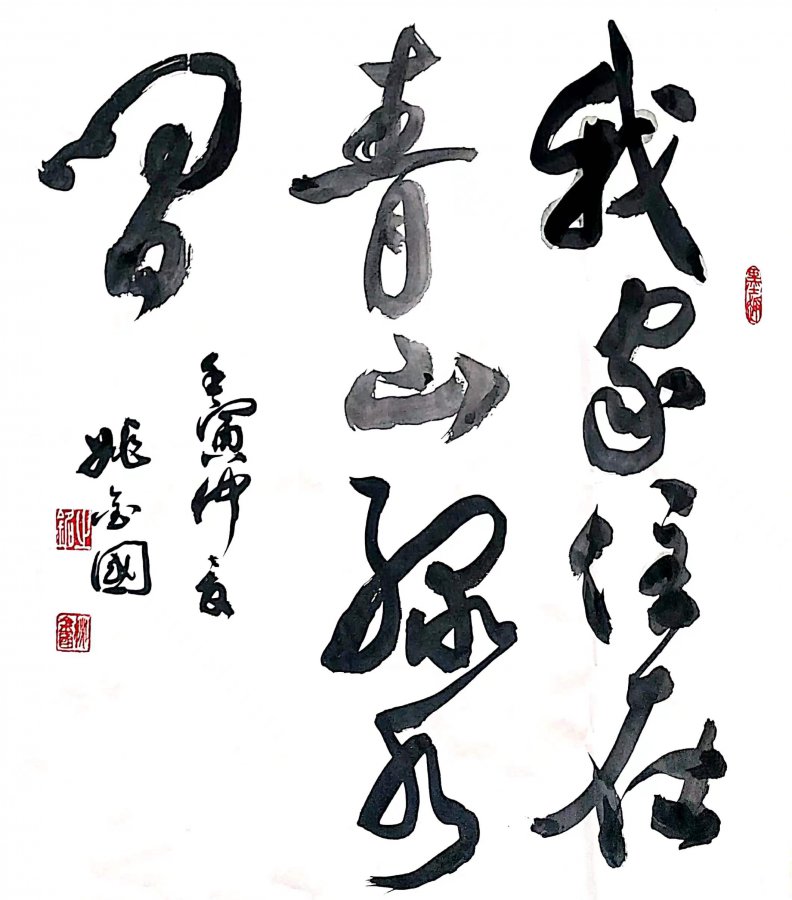 我家住在
青山綠水
间
壬寅仲夏
姚金國